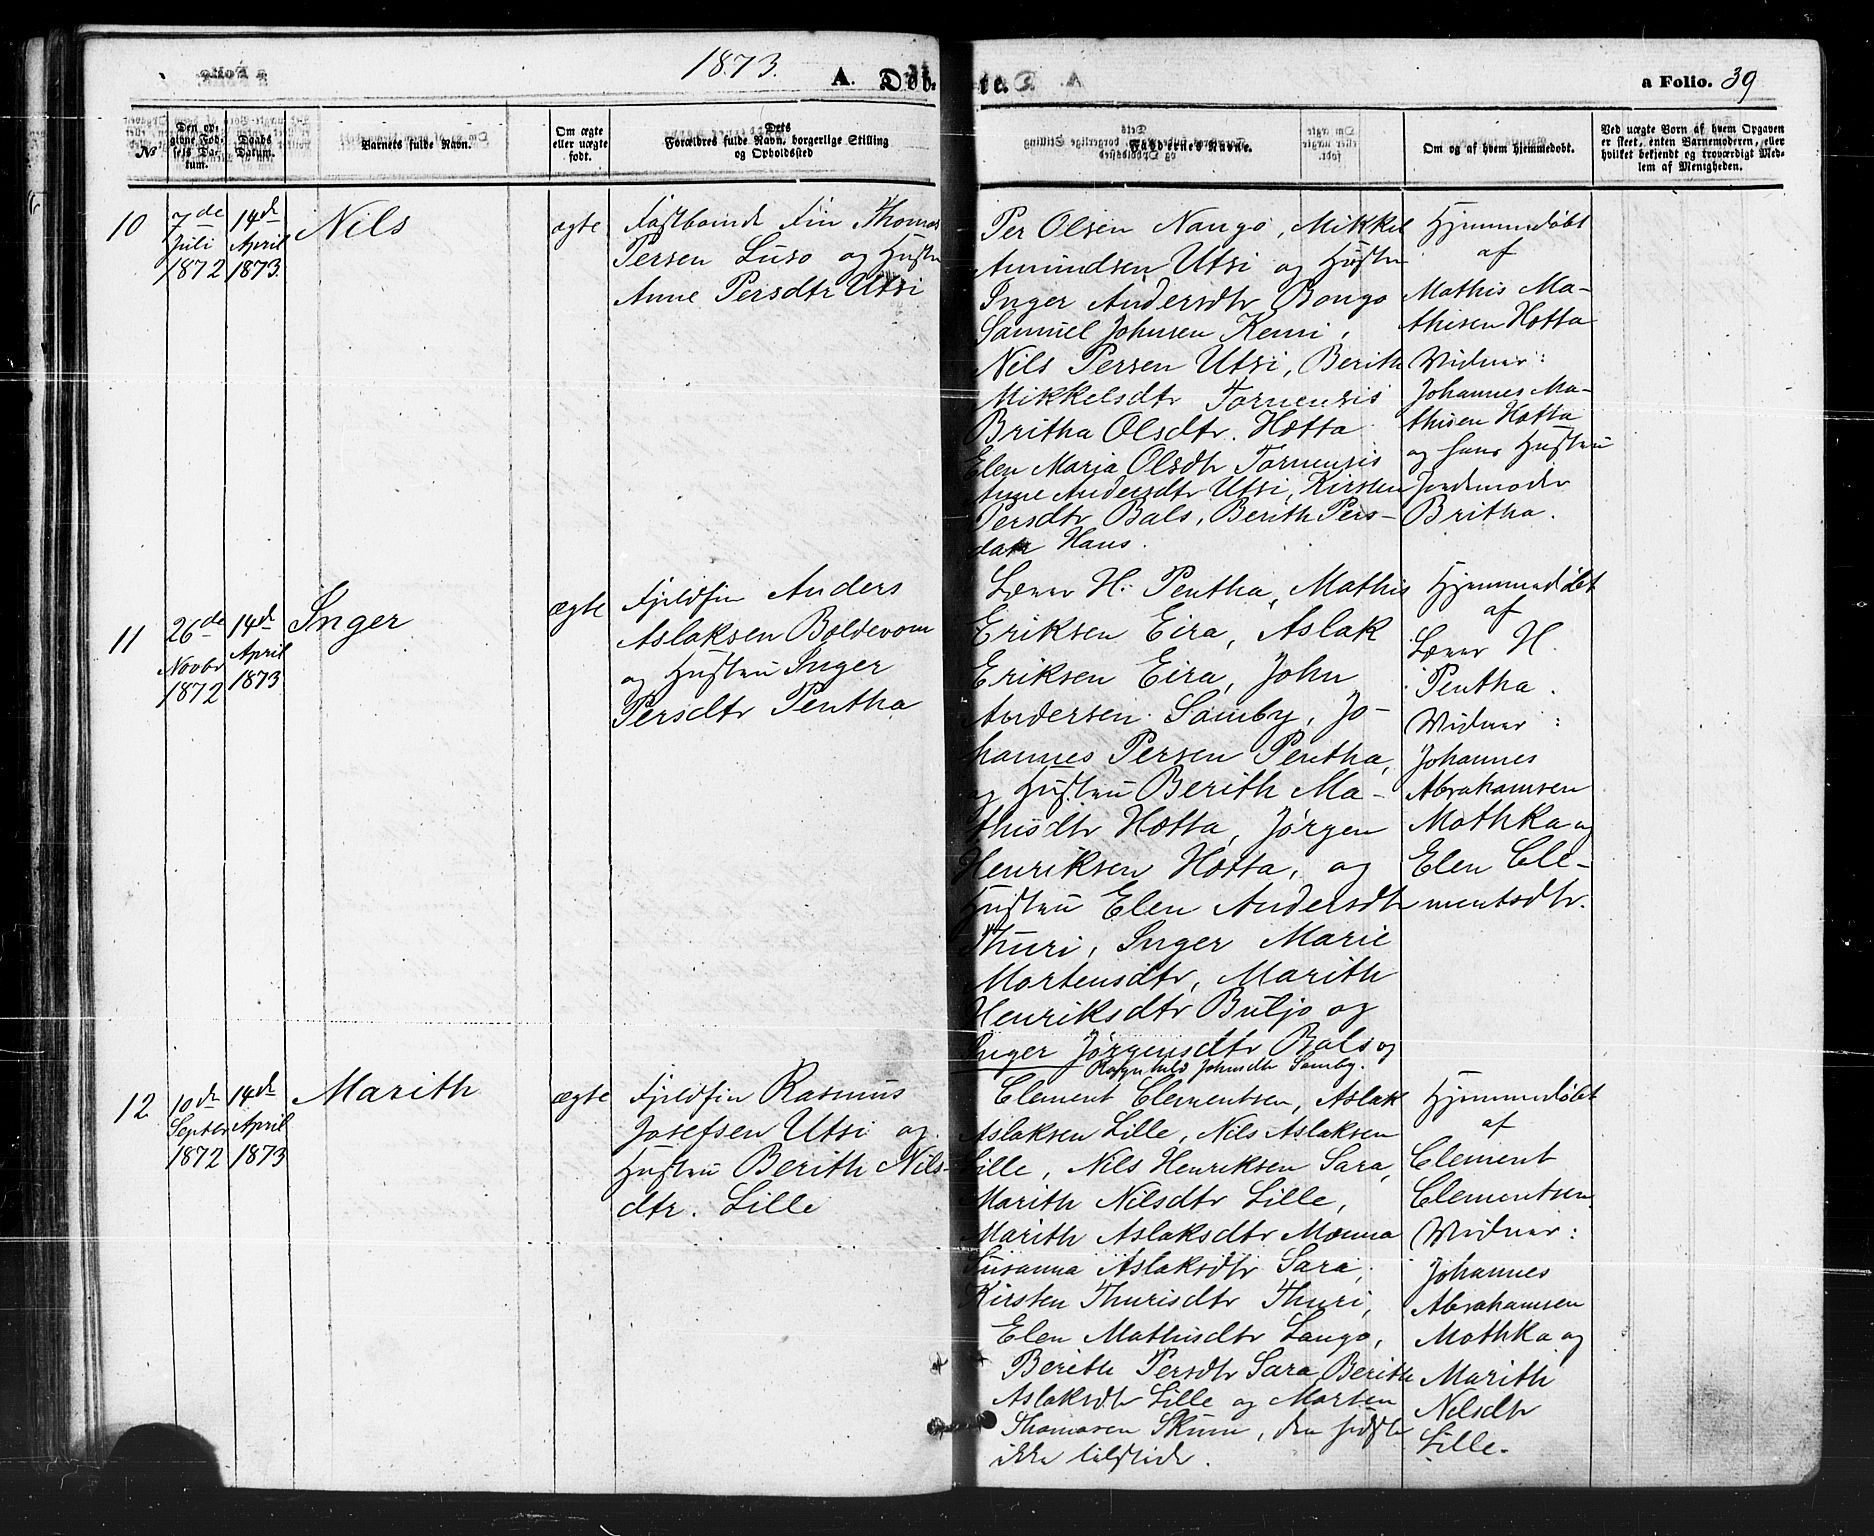 1873.
A. Døbte.
a Folio. 39
No
Den opgivne Fødsels Datum.
Daabs Datum.
Barnets fulde Navn.
Om ægte eller uægte født.
Forældres fulde Navn, borgerlige Stilling og Opholdssted
Faddernes Navne.
Om og af hvem hjemmedøbt.
Ved uægte Børn af hvem Opgaven er skeet, enten Barnemoderen, eller hvilket bekjendt og troværdigt Medlem af Menigheden.
10
7de
Juli
1872
14de
April
1873.
Nils
ægte
Fastboende Fin Thomas
Persen Luso og Hustru
Anne Persdtr Utsi
Per Olsen Nango, Mikkel
Amundsen Utsi og Hustru
Inger Andersdtr Bongo
Samuel Johnsen Kemi,
Nils Persen Utsi, Berith
Mikkelsdtr Tornensis
Britha Olsdtr. Hætta
Elen Maria Olsdtr Tornensis
Anne Andersdtr Utsi, Kirsten
Persdtr Bals, Berith Pers-
datr Hans.
Hjemmedøbt
af
Mathis Ma-
thisen Hætta
Vidner:
Johannes Ma-
thisen Hætta
og hans Hustru
Jordemoder
Britha.
11
26de
Novbr
1872
14de
April
1873
Inger
ægte
Fjeldfin Anders
Aslaksen Boldevom
og Hustru Inger
Persdtr Pentha
Lærer H. Pentha, Mathis
Eriksen Eira, Aslak
Eriksen Eira, John
Andersen Somby, Jo-
hannes Persen Pentha,
og Hustru Berith Ma-
thisdtr Hætta, Jørgen
Henriksen Hætta, og
Hustru Elen Andersdtr
Thuri, Inger Marie
Mortensdtr, Marith
Henriksdtr Buljo og
Inger Jørgensdtr Bals og
Ragnhild Johnsdtr Somby.
Hjemmedøbt
af
Lærer H.
Pentha.
Vidner:
Johannes
Abrahamsen
Mothka og
Elen Cle-
mentsdtr.
12
10de
Septbr
1872
14de
April
1873
Marith
ægte
Fjeldfin Rasmus
Josefsen Utsi og
Hustru Berith Nils-
dtr. Lille
Clement Clementsen, Aslak
Aslaksen Lille, Nils Aslaksen
Lille, Nils Henriksen Sara,
Marith Nilsdtr Lille,
Marith Aslaksdtr Mænna
Susanna Aslaksdtr Sara,
Kirsten Thurisdtr Thuri,
Elen Mathisdtr Lango,
Berith Persdtr Sara, Berith
Aslaksdtr Lille og Morten
Thomasen Skum, den sidste
ikke tilstede.
Hjemmedøbt
af
Clement
Clementsen
Vidner:
Johannes
Abrahamsen
Mothka og
Marith
Nilsdtr
Lille.